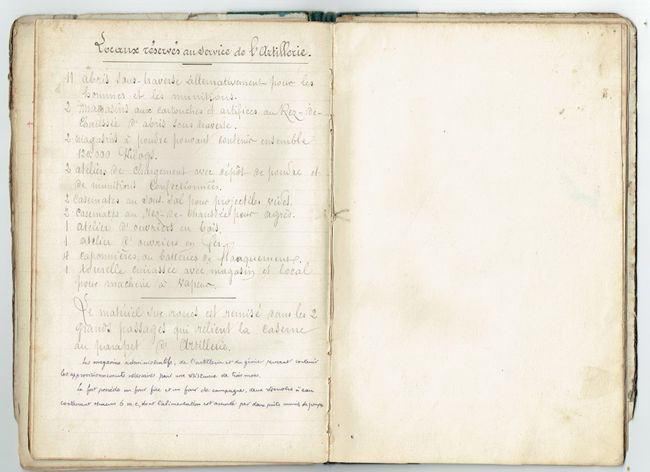 Locaux réservés au service de l'Artillerie.
11 abris sous-traverse alternativement pour les
hommes et les munitions.
2 magasins aux cartouches et artifices au Rez-de-
Chaussée d'abris sous traverse.
2 magasins à poudre pouvant contenir ensemble
120,000 Kilogs.
2 ateliers de chargement avec dépôt de poudre et
de munitions Confectionnées.
2 casemates au Sous-Sol pour projectiles vides.
2 casemates au Rez-de-chaussée pour agrès.
1 atelier d'ouvriers en bois.
1 atelier d'ouvriers en Fer.
4 caponnières, ou batteries de flanquement.
1 tourelle cuirassée avec magasin et local
pour machine à vapeur.
Le matériel sur roues est remisé dans les 2
grands passages qui relient la caserne
au parapet d'Artillerie.
Les magasins administratifs, de l'artillerie et du génie peuvent contenir
les approvisionnements nécessaires pour une résistance de trois mois.
Le fort possède un four fixe et un four de campagne, deux réservoirs à eau
contenant chacun 6 m.c, dont l'alimentation est assurée par deux puits munis de pompes